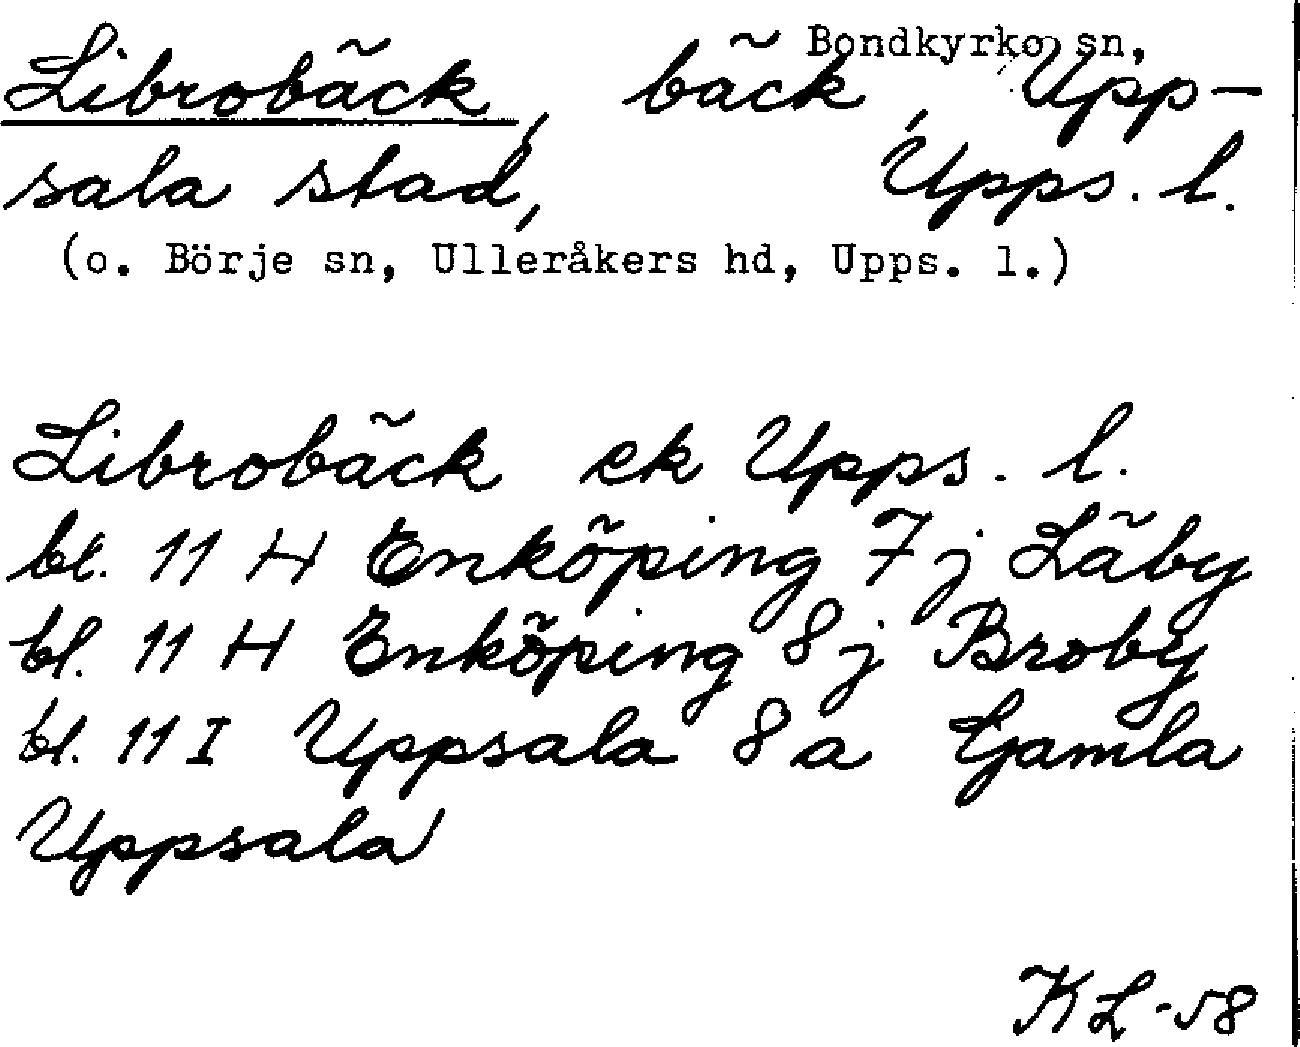 Librobäck, bäck, Bondkyrko sn, Upp-
sala stad, Upps. l.
(o. Börje sn, Ulleråkers hd, Upps. l.)
Librobäck ek Upps. l.
bl. 11 H Enköping 7 j Läby
bl. 11 H Enköping 8 j Broby
bl. 11 I Uppsala 8 a Gamla
Uppsala
KL-58